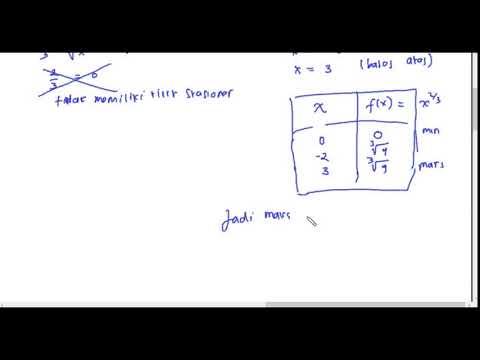 3 ∛x
2/3 = 0
tidak memiliki titik stasioner
x = 3 (batas atas)
x f(x) = x^2/3
0 0 min
-2 ∛4
3 ∛9 maks
Jadi maks